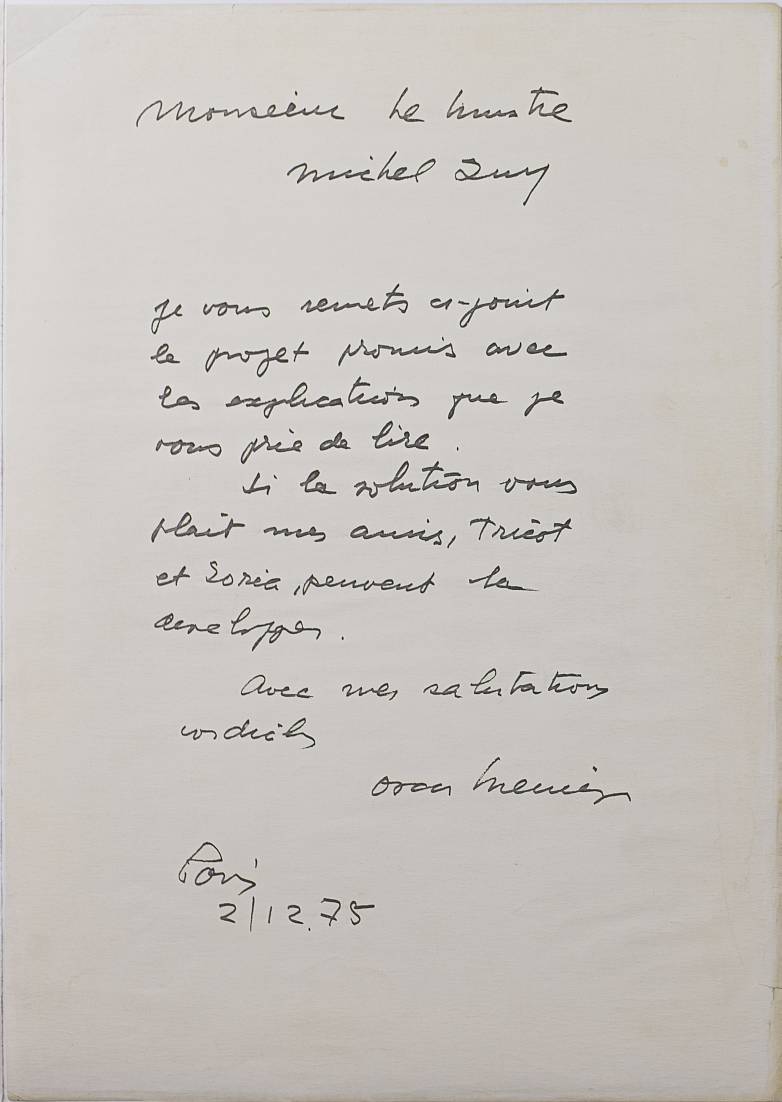 Monsieur Le Ministre
Michel Guy
je vous remets ci-joint
le projet promis avec
les explications que je
vous prie de lire.
Si la solution vous
plait mes amis, Tricot
et Soria, peuvent la
developper.
Avec mes salutations
cordiales
Oscar Niemeyer
Paris
2/12.75